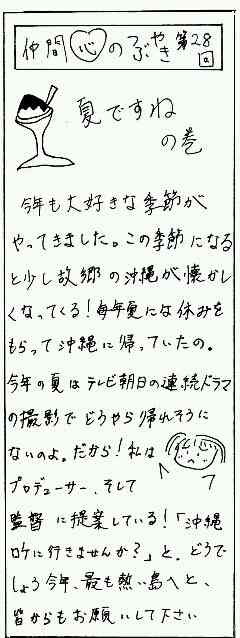 仲間心のつぶやき第28回
夏ですね
の巻
今年も大好きな季節が
やってきました。この季節になる
と少し故郷の沖縄が懐かし
くなってくる！毎年夏には休みを
もらって沖縄に帰っていたの。
今年の夏はテレビ朝日の連続ドラマ
の撮影でどうやら帰れそうに
ないのよ。だから！私は
プロデューサー、そして
監督に提案している！「沖縄
ロケに行きませんか？」と。どうで
しょう今年、最も熱い島へと、
皆からもお願いして下さい